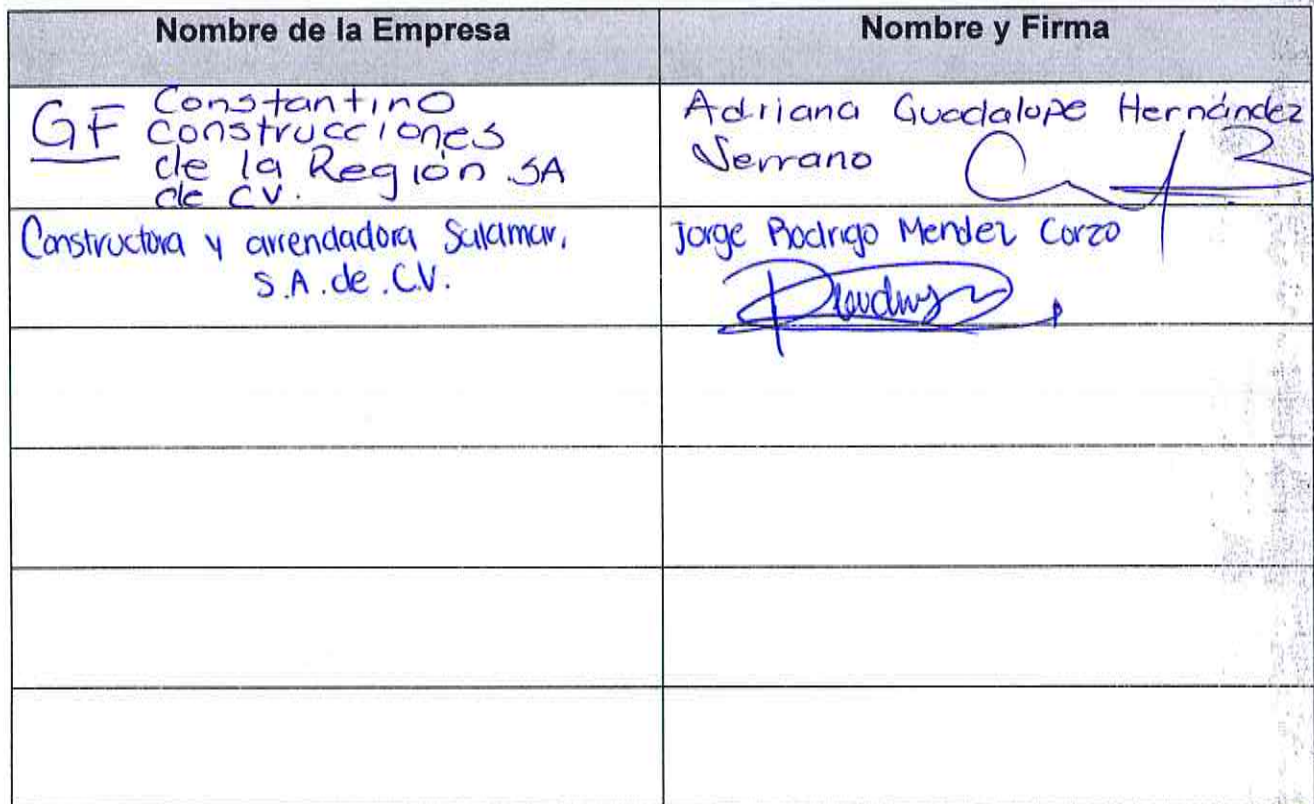 Nombre de la Empresa
Nombre y Firma
GF Constantino
construcciones
de la Región SA
de CV.
Adriana Guadalupe Hernández
Serrano
Constructora y arrendadora Salamar,
S.A. de C.V.
Jorge Rodrigo Mendez Corzo